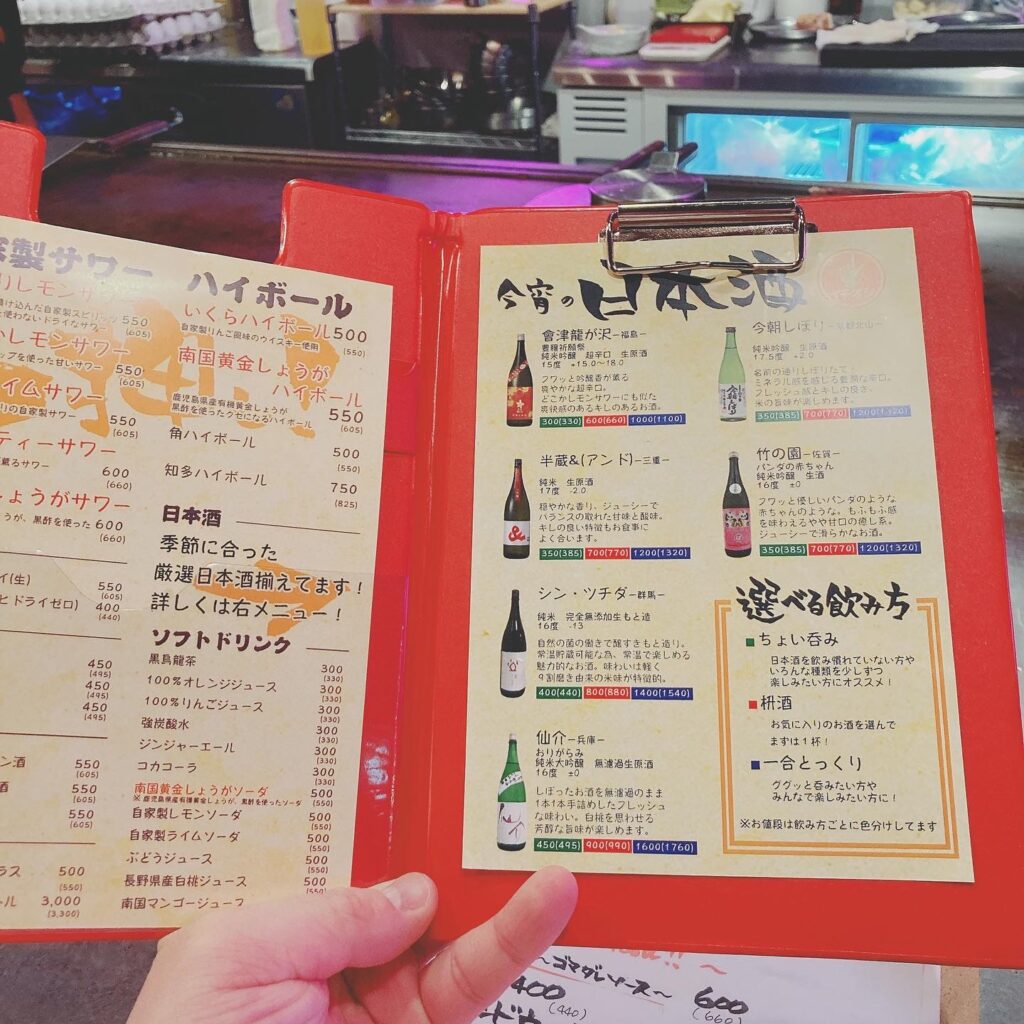 製サワー
りレモンサワー
漬け込んだ自家製スピリッツ
使わないドライなサワー
550
(605)
レモンサワー
ップを使った甘いサワー
550
(605)
イムサワー
りの自家製サワー
550
(605)
ティーサワー
薫るサワー
600
(660)
しょうがサワー
うが、黒酢を使った 600
(660)
イ(生)
550
(605)
ヒ ドライゼロ)
400
(440)
450
(495)
450
(495)
450
(495)
ン酒
550
(605)
酒
550
(605)
550
(605)
ラス
500
(550)
ール
3,000
(3,300)
ハイボール
いくらハイボール 500
自家製りんご風味のウイスキー使用
(550)
南国黄金しょうが
ハイボール
鹿児島県産有機黄金しょうが
黒酢を使ったクセになるハイボール
550
(605)
角ハイボール
500
(550)
知多ハイボール
750
(825)
日本酒
季節に合った
厳選日本酒揃えてます！
詳しくは右メニュー！
ソフトドリンク
黒烏龍茶
300
(330)
100%オレンジジュース
300
(330)
100%りんごジュース
300
(330)
強炭酸水
300
(330)
ジンジャーエール
300
(330)
コカコーラ
300
(330)
南国黄金しょうがソーダ
500
※ 鹿児島県産有機黄金しょうが、黒酢を使ったソーダ
(550)
自家製レモンソーダ
500
(550)
自家製ライムソーダ
500
(550)
ぶどうジュース
500
(550)
長野県産白桃ジュース
500
(550)
南国マンゴージュース
今宵の日本酒
會津龍が沢 ー福島ー
豊穣祈願祭
純米吟醸 超辛口 生原酒
15度 +15.0～18.0
フワッと吟醸香が薫る
爽やかな超辛口。
どこかレモンサワーにも似た
爽快感のあるキレのあるお酒。
300(330) 600(660) 1000(1100)
半蔵&(アンド) ー三重ー
純米 生原酒
17度 -2.0
穏やかな香り、ジューシーで
バランスの取れた甘味と酸味。
キレの良い特徴もお食事に
よく合います。
350(385) 700(770) 1200(1320)
シン・ツチダ ー群馬ー
純米 完全無添加生もと造
16度 -13
自然の菌の働きで醸すきもと造り。
常温貯蔵可能な為、常温で楽しめる
魅力的なお酒。味わいは軽く
９割磨き由来の米味が特徴的。
400(440) 800(880) 1400(1540)
仙介 ー兵庫ー
おりがらみ
純米大吟醸 無濾過生原酒
16度 ±0
しぼったお酒を無濾過のまま
1本1本手詰めしたフレッシュ
な味わい。白桃を思わせる
芳醇な旨味が楽しめます。
450(495) 900(990) 1600(1760)
今朝しぼり ー京都北山ー
純米吟醸 生原酒
17.5度 +2.0
名前の通りしぼりたて！
ミネラル感を感じる豊潤な辛口。
フレッシュ感とキレの良さ。
米の旨味が楽しめます。
350(385) 700(770) 1200(1320)
竹の園 ー佐賀ー
パンダの赤ちゃん
純米吟醸 生酒
16度 ±0
フワッと優しいパンダのような
赤ちゃんのような。もふもふ感
を味わえるやや甘口の癒し系。
ジューシーで滑らかなお酒。
350(385) 700(770) 1200(1320)
選べる飲み方
ちょい呑み
日本酒を飲み慣れていない方や
いろんな種類を少しずつ
楽しみたい方にオススメ！
枡酒
お気に入りのお酒を選んで
まずは１杯！
一合とっくり
ググッと呑みたい方や
みんなで楽しみたい方に！
※お値段は飲み方ごとに色分けしてます
～ゴマダレソース～
400
(440)
600
(660)